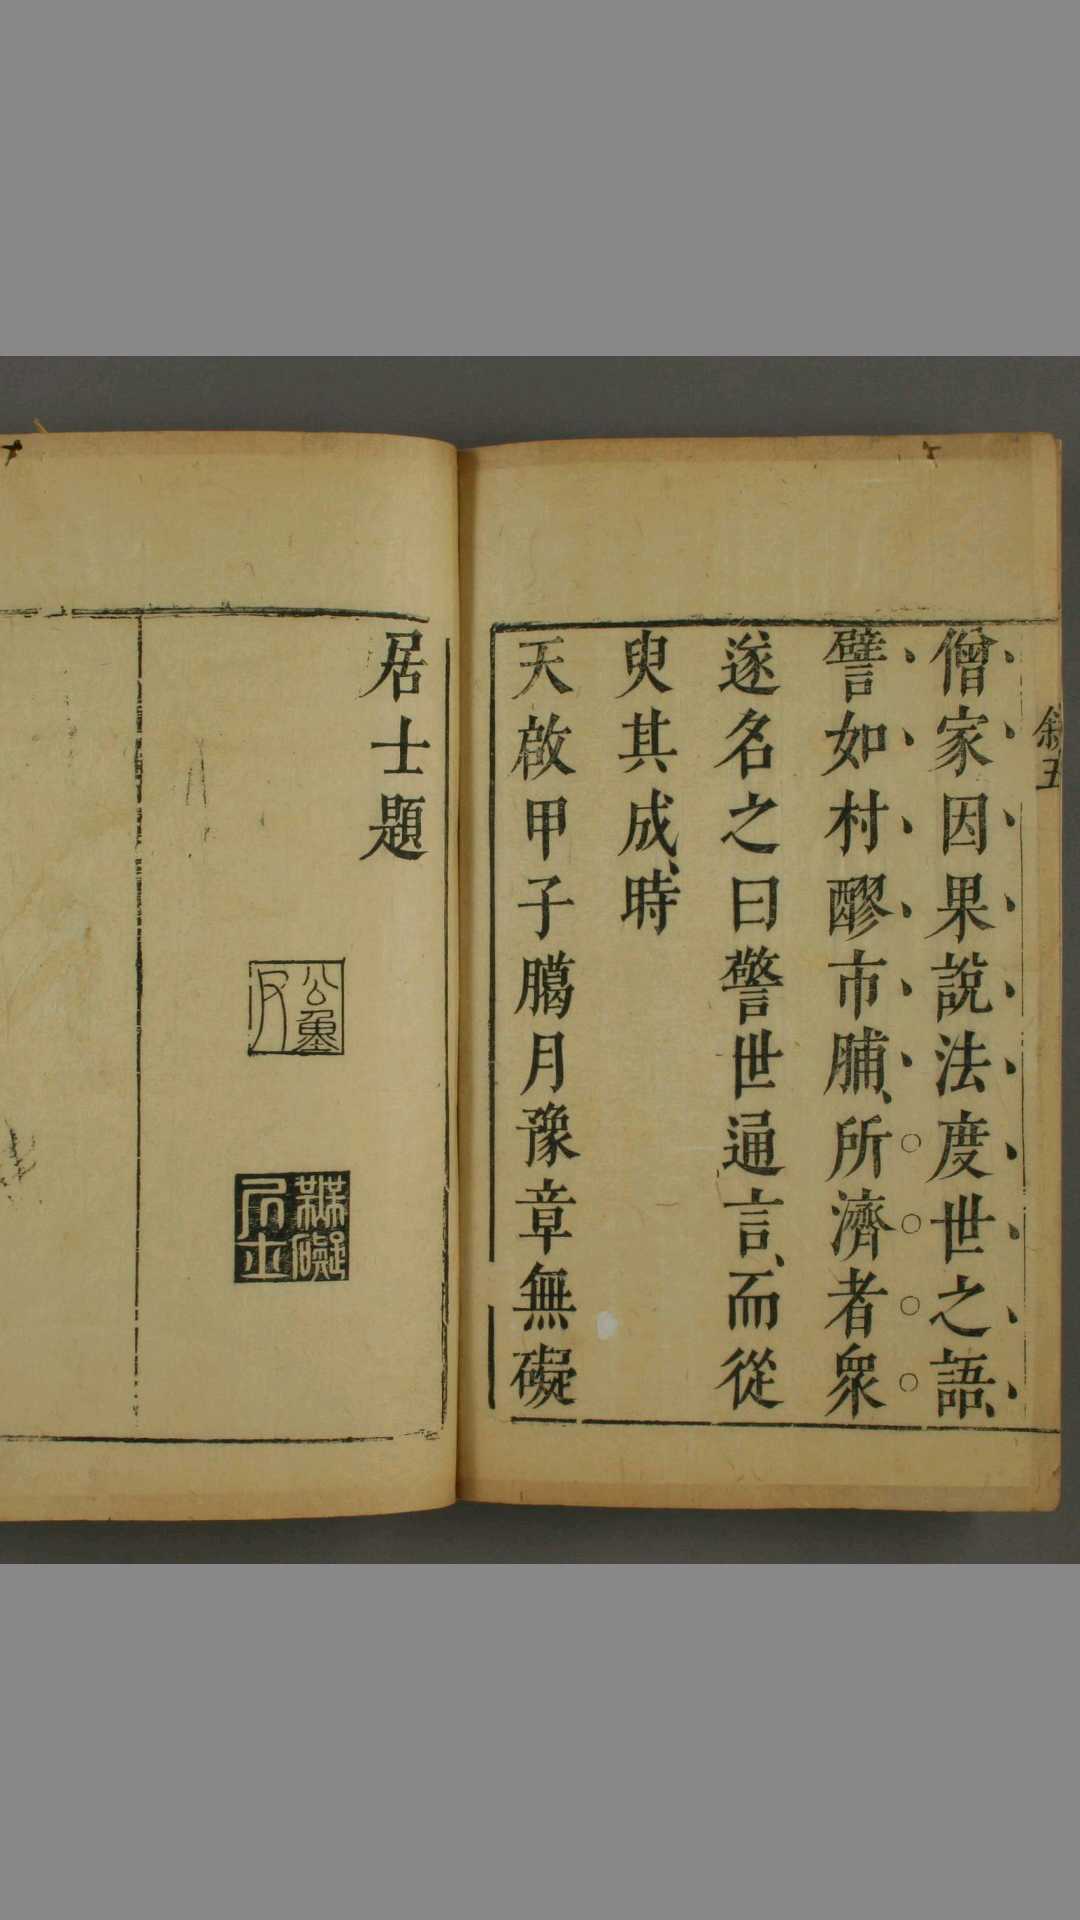 叙五
僧家因果說法度世之語、
譬如村醪市脯、所濟者衆
遂名之曰警世通言、而從
臾其成、時
天啟甲子臈月豫章無礙
居士題
無礙居士